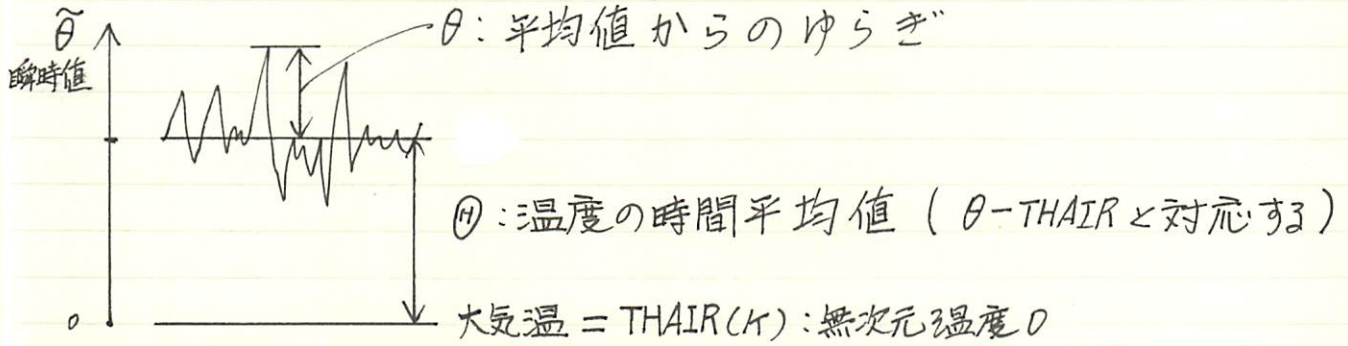 θ̃
瞬時値
θ:平均値からのゆらぎ
Ⓗ:温度の時間平均値(θ-THAIRと対応する)
0
大気温=THAIR(K):無次元温度0